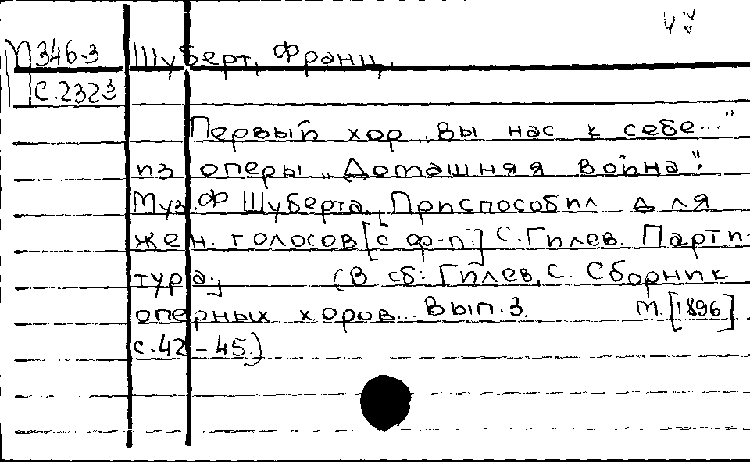 П346-3 Шуберт, Франц.
С.2323
Первый хор „Вы нас к себе..."
из оперы „Домашняя война".
Муз. Ф Шуберта. Приспособил для
жен. голосов [с ф-п] С. Гилев. Парти-
тура; (В сб: Гилев, С. Сборник
оперных хоров. Вып. 3 М. [1896]
с. 42-45.)